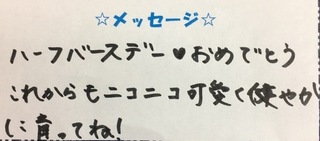 ☆メッセージ☆
ハーフバースデー♥おめでとう
これからもニコニコ可愛く健やか
に育ってね!